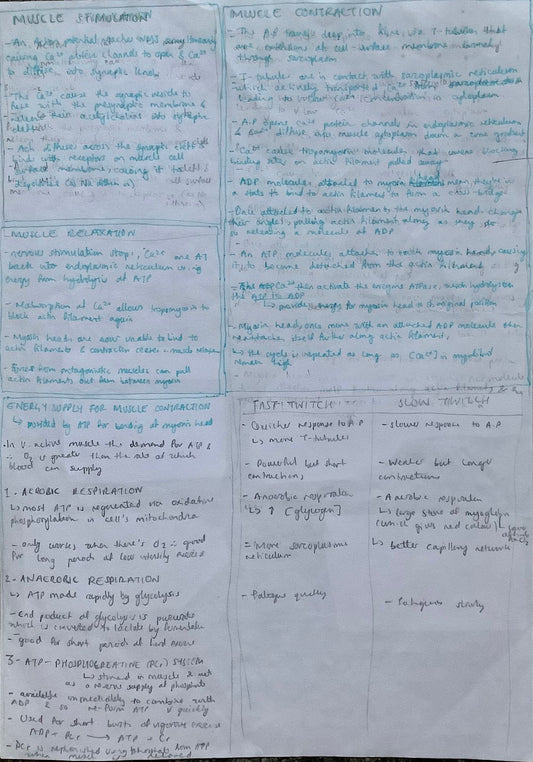 MUSCLE STIMULATION
- An action potential reaches NMJ
causing Ca²⁺ protein channels to open & Ca²⁺
to diffuse into synaptic knob
- The Ca²⁺ cause the synaptic vesicles to
fuse with the presynaptic membrane &
release their acetylcholine into synaptic
- Ach diffuses across the synaptic cleft &
binds with receptors on muscle cell
surface membrane, causing it to
depolarise (∴ Na⁺ in)
MUSCLE RELAXATION
- nervous stimulation stops, Ca²⁺ are AT
back into endoplasmic reticulum using
energy from hydrolysis of ATP
- Reabsorption of Ca²⁺ allows tropomyosin to
block actin filament again
- Myosin heads are now unable to bind to
actin filaments & contraction ceases
- Force from antagonistic muscles can pull
actin filaments out from between myosin
MUSCLE CONTRACTION
- The A.P travels deep into fibre via T-tubules that
are extensions of cell-surface membrane &
through sarcoplasm
- T-tubules are in contact with sarcoplasmic reticulum
which actively transported Ca²⁺
leading to v. low Ca²⁺ concentration in cytoplasm
- A.P opens Ca²⁺ protein channels on endoplasmic reticulum
& Ca²⁺ diffuse into muscle cytoplasm down a conc gradient
- Ca²⁺ cause tropomyosin molecules that were blocking
binding sites on actin filament pulled away
- ADP molecules attached to myosin heads mean they're in
a state to bind to actin filament to form a cross-bridge
- Once attached to actin filament the myosin heads change
their angle, pulling actin filament along as they do
so releasing a molecule of ADP
- An ATP molecule attaches to each myosin head, causing
it to become detached from the actin filament
- The Ca²⁺ then activate the enzyme ATPase, which hydrolyses
the ATP to ADP
↳ provides energy for myosin head → original position
- Myosin head, once more with an attached ADP molecule then
reattaches itself further along actin filament,
↳ the cycle is repeated as long as [Ca²⁺] in myofibril
remain high
ENERGY SUPPLY FOR MUSCLE CONTRACTION
↳ provided by ATP for bending of myosin head
· In v. active muscle the demand for ATP &
∴ O₂ is greater than the rate at which
blood can supply
1 - AEROBIC RESPIRATION
↳ most ATP is regenerated via oxidative
phosphorylation in cell's mitochondria
- only works when there's O₂ ∴ good
for long periods of low intensity exercise
2 - ANAEROBIC RESPIRATION
↳ ATP made rapidly by glycolysis
- end product of glycolysis is pyruvate
which is converted to lactate by fermentation
- good for short periods of hard exercise
3 - ATP - PHOSPHOCREATINE (PCr) SYSTEM
↳ stored in muscle & acts
as a reserve supply of phosphate
- available immediately to combine with
ADP & so re-form ATP v quickly
- Used for short bursts of vigorous exercise
ADP + PCr → ATP + Cr
- PCr is replenished using phosphate from ATP
when muscle is relaxed
FAST TWITCH
- Quicker response to A.P
↳ more T-tubules
- Powerful but short
contractions
- Anaerobic respiration
↳ ↑ [glycogen]
- More sarcoplasmic
reticulum
- Fatigue quickly
SLOW TWITCH
- slower response to A.P
- Weaker but longer
contractions
- Aerobic respiration
↳ large store of myoglobin
(which gives red colour)
↳ better capillary network
- Fatigues slowly